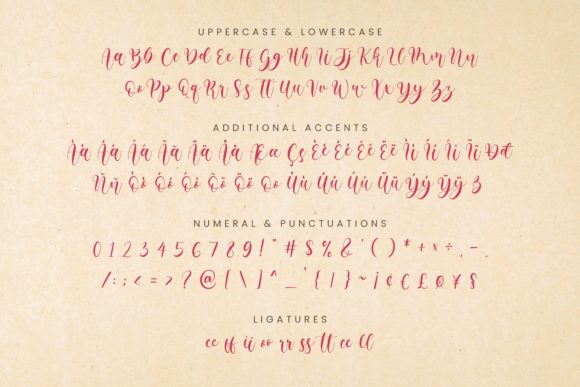 UPPERCASE & LOWERCASE
Aa Bb Cc Dd Ee Ff Gg Hh Ii Jj Kk Ll Mm Nn
Oo Pp Qq Rr Ss Tt Uu Vv Ww Xx Yy Zz
ADDITIONAL ACCENTS
Çç Èè Éé Êê Ëë Ìì Íí Îî Ïï
Ññ Òò Óó Ôô Õõ Öö Ùù Úú Ûû Üü Ýý Ÿÿ
NUMERAL & PUNCTUATIONS
0 1 2 3 4 5 6 7 8 9 ! " # $ % & ' ( ) * + × ÷ , - .
/ : ; < = > ? @ [ \ ] ^ _ ` { | } ~ ¡ ¢ € £ ¥ $
LIGATURES
ee ff ii oo rr ss tt cc ll